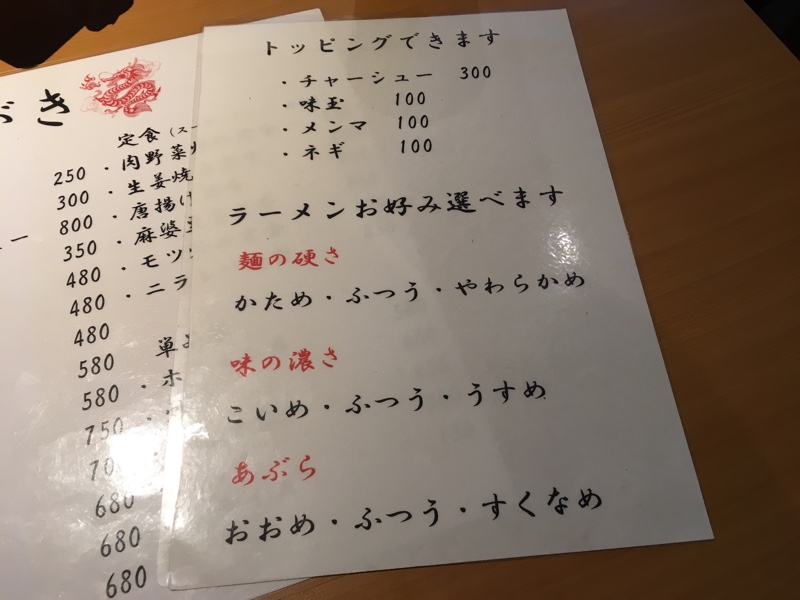 ぶき
定食
250
・肉野菜
300
・生姜焼
800
・唐揚げ
350
・麻婆
480
・モツ
480
・ニラ
480
580
単
580
・ホ
750
70
680
680
680
トッピングできます
・チャーシュー 300
・味玉 100
・メンマ 100
・ネギ 100
ラーメンお好み選べます
麺の硬さ
かため・ふつう・やわらかめ
味の濃さ
こいめ・ふつう・うすめ
あぶら
おおめ・ふつう・すくなめ